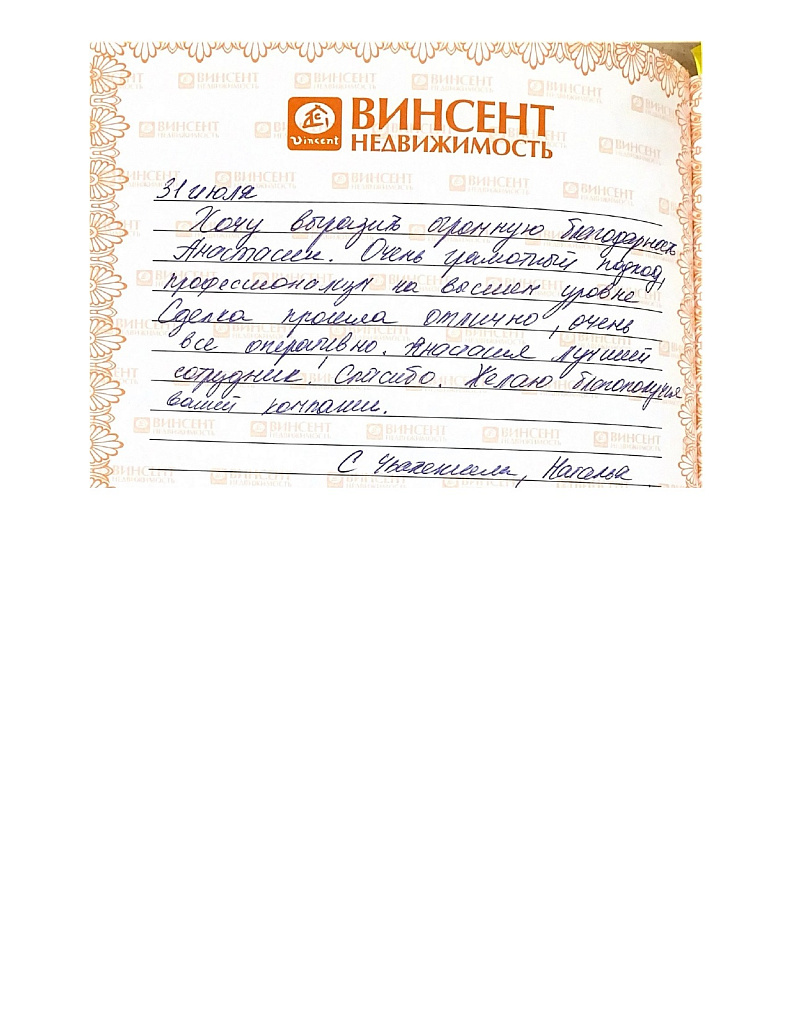 ВИНСЕНТ
НЕДВИЖИМОСТЬ
Vincent
31 июля
Хочу выразить огромную благодарность
Анастасии. Очень грамотный подход,
профессионализм на высшем уровне
Сделка прошла отлично, очень
все оперативно. Анастасия лучший
сотрудник, Спасибо. Желаю благополучия
вашей компании.
С Уважением, Наталья